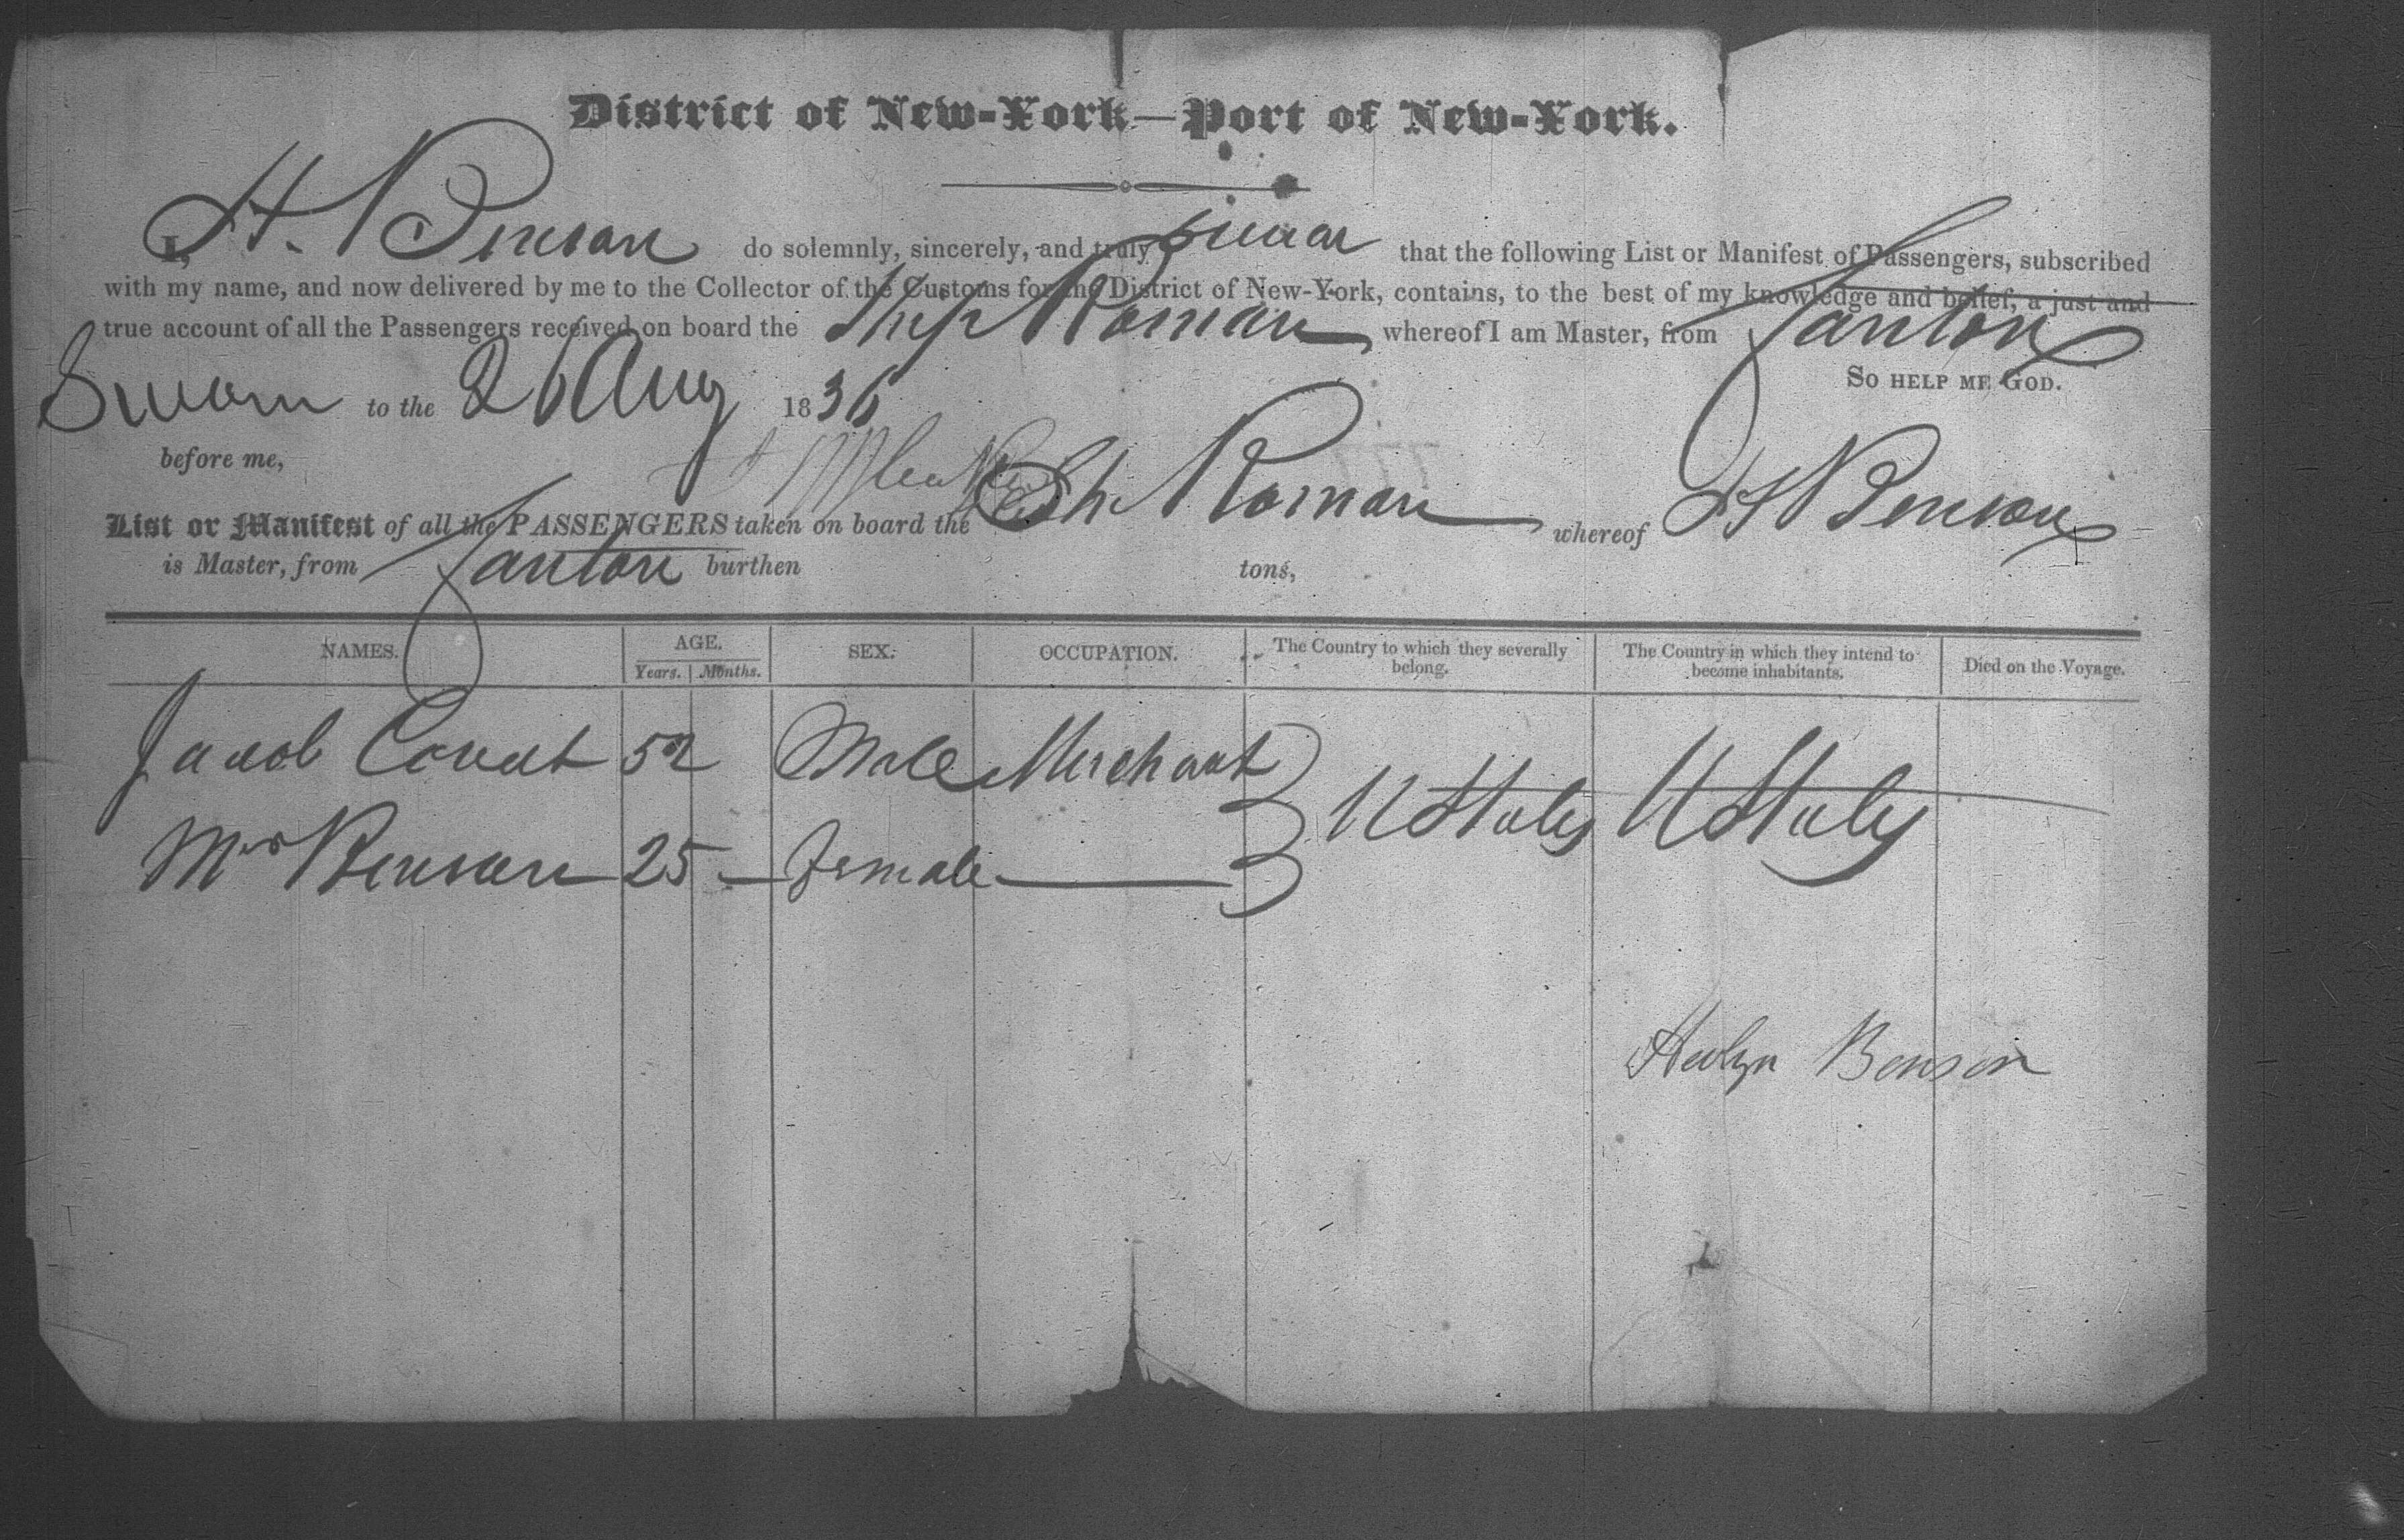 District of New-York—Port of New-York.
I, H. Benson do solemnly, sincerely, and truly swear that the following List or Manifest of Passengers, subscribed
with my name, and now delivered by me to the Collector of the Customs for the District of New-York, contains, to the best of my knowledge and belief, a just and
true account of all the Passengers received on board the Ship Roman whereof I am Master, from Canton
So help me God.
Sworn to the 26 Aug 1836
before me,
List or Manifest of all the PASSENGERS taken on board the Sh Roman whereof H Benson
is Master, from Canton burthen tons,
NAMES. AGE. SEX. OCCUPATION. The Country to which they severally belong. The Country in which they intend to become inhabitants. Died on the Voyage.
Years. Months.
Jacob Covert 52 Male Merchant
U States U States
Mrs Benson 25 — female —
Benson